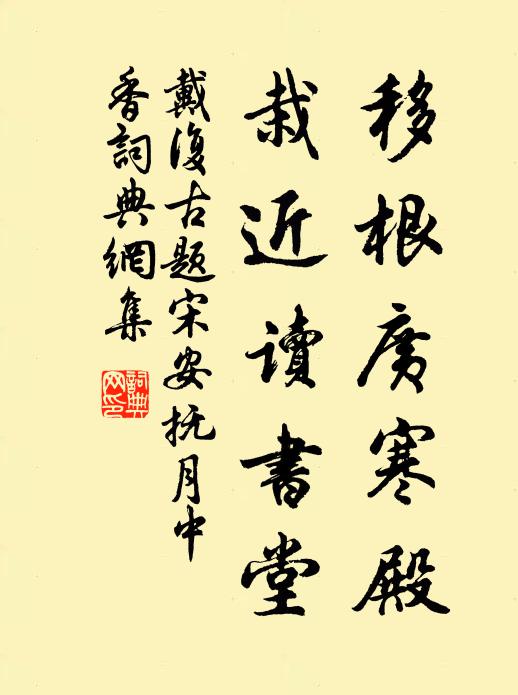 移根广寒殿
栽近讀書堂
戴復古題宋安抚月中
香詞典網集
詞典
网印